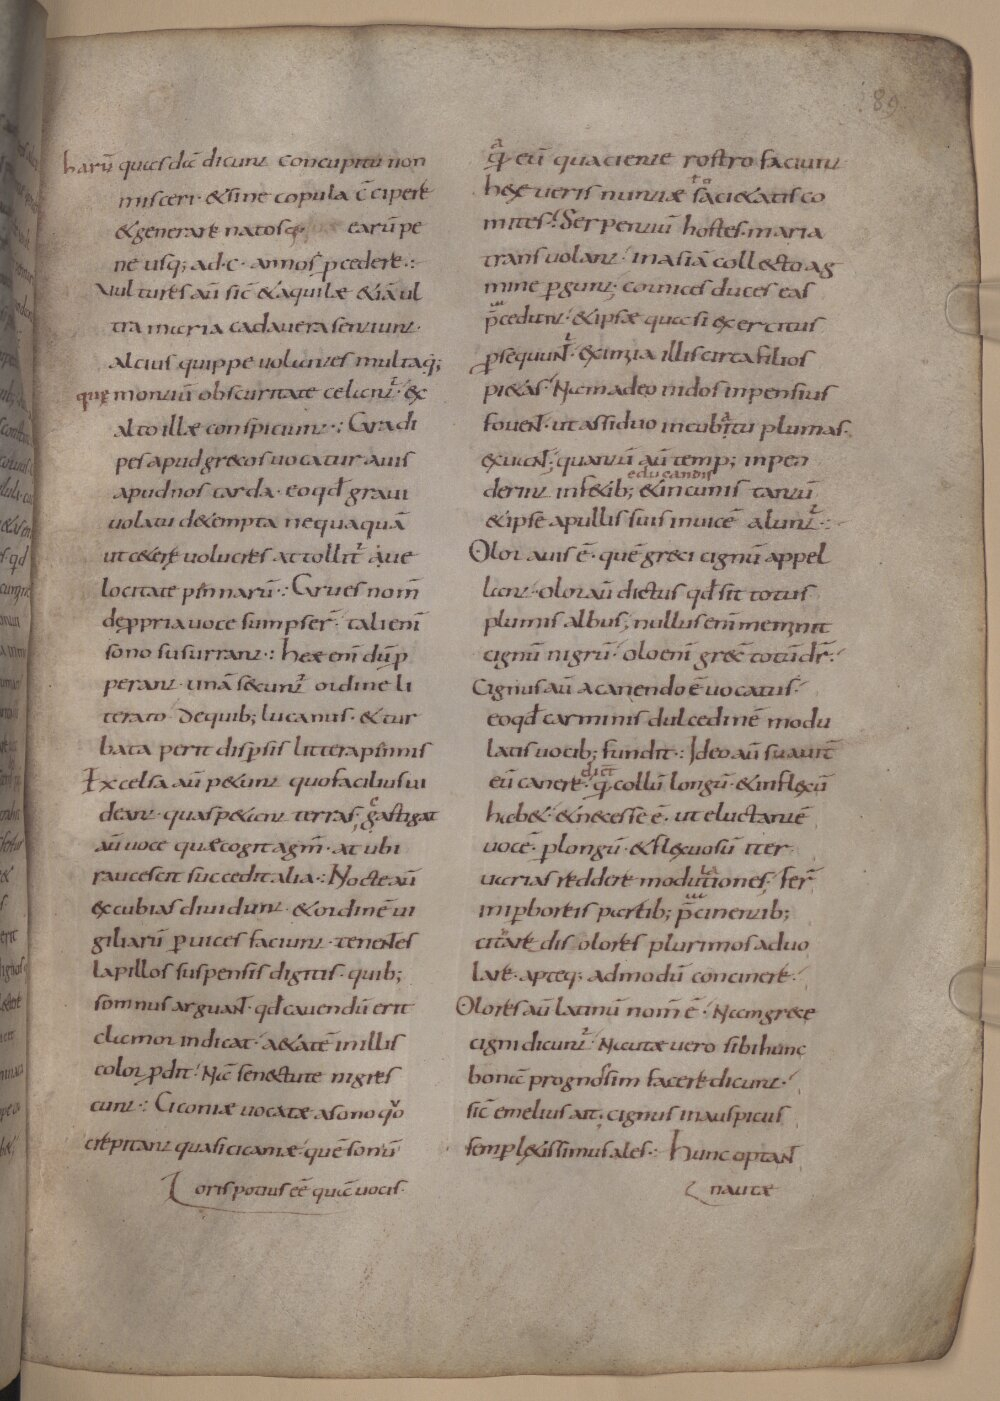 89
harū quasdā dicunt concupitu non
misceri · & sine copula c̄cipere
& generare natosq; earū pe
ne usq; ad · c · annos pcedere ·:
Vultures aū sic̄ & aquilæ & iā ul
tra maria cadauera sentiunt ·
altius quippe uolantes multaq;
quę montiū obscuritate celant᷑ · ex
alto illæ conspiciunt ·: Gradi
pes apud grecos uocatur auis
apud nos tarda · eo qd̄ graui
uolatu detempta nequaquā
ut c&ere uolucres attollit᷑ aue
locitate pinnarū ·: Grues nom̄
de ppria uoce sumpser̄ · tali eni̅
sono susurrant ·: hæ eni̅ dū p
perant · unā secunt᷑ ordine li
terato · De quib; lucanus · & tur
bata perit dispsis littera pinnis
Excelsa aū p&unt quo facilius ui
deant · quas p&ant terras; castigat
aū uoce quæ cogit agm̄ · at ubi
raucescit succedit alia ·: Nocte aū
excubias diuidunt · & ordinē ui
giliarū p uices faciunt · tenentes
lapillos suspensis digitis · quib;
somnus arguant · qd̄ cauendū erit
clamor indicat · a&atē in illis
color pdit · Nā senectute nigres
cunt ·: Ciconiæ uocatæ a sono quo
crepitant quasi cicaniæ · quē sonū
oris potius eē quā uocis ·
q̄a eū quatiente rostro faciunt
hæ ueris nuntiæ sotiętatis co
mites · Serpentiū hostes · maria
transuolant · in asiā collecto ag
mine pgunt · cornices duces eas
p̄cedunt · & ipsæ quasi exercitus
psequunt᷑ · eximia illis circa filios
pi&as · Nam adeo nidos inpensius
fouent · ut assiduo incubitu plumas
exuant; quantū aū temp; inpen
educandis
derint in f&ib; & in cunis tantū
& ipse a pullis suis inuicē alunt᷑ ·:
Olor auis ē · quē greci cignū appel
lant · olor aū dictus qd̄ sit totus
plumis albus; nullus eni̅ meminit
cignū nigrū · olo eni̅ grec̄ totū dr̄ ·:
Cignus aū a canendo ē uocatus ·
eo qd̄ carminis dulcedinē modu
latis uocib; fundit ·: Ideo aū suauit̄
eū canere dict̄ · q̄a collū longū · & inflexū
hab& · & necesse ē · ut eluctantē
uocē · p longū · & flexuosū iter
uarias reddere modulationes · fer̄
in ipboreis partib; p̄cinentib;
citare dis olores plurimos aduo
lare · apteq; admodū concinere ·
Olores aū latinū nom̄ ē · Nam grece
cigni dicunt᷑ · Nautæ uero sibi hunc
bonā prognosim facere dicunt ·
sic̄ emelius ait; cignus in auspicus
semp lętissimus ales ·: hunc optant
nautæ